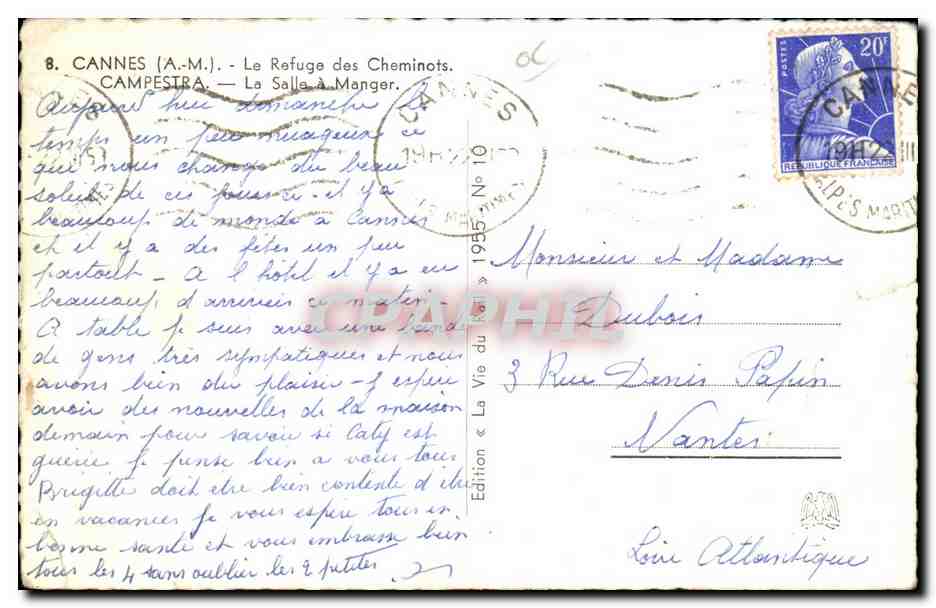 8. CANNES (A.-M.). - Le Refuge des Cheminots.
CAMPESTRA. — La Salle à Manger.
Aujourd'hui dimanche le
temps un peu nuageux ce
qui nous change du beau
soleil de ces jours ci - il y a
beaucoup de monde a Cannes
et il y a des fêtes un peu
partout - A l'hôtel il y a eu
beaucoup d'arrivées ce matin -
A table je suis avec une bande
de gens très sympatiques et nous
avons bien du plaisir - J espère
avoir des nouvelles de la maison
demain pour savoir si Caty est
guérie je pense bien a vous tous
Brigitte doit etre bien contente d'être
en vacances je vous espère tous en
bonne santé et vous embrasse bien
tous les 4 sans oublier les 2 petites
Edition « La Vie du Rail » 1955 N° 10
Monsieur et Madame
Dubois
3 Rue Denis Papin
Nantes
Loire Atlantique
POSTES
20F
REPUBLIQUE FRANÇAISE
CANNES
19H
CANNES
19H
ALPES MARITIMES
CRAPHIL